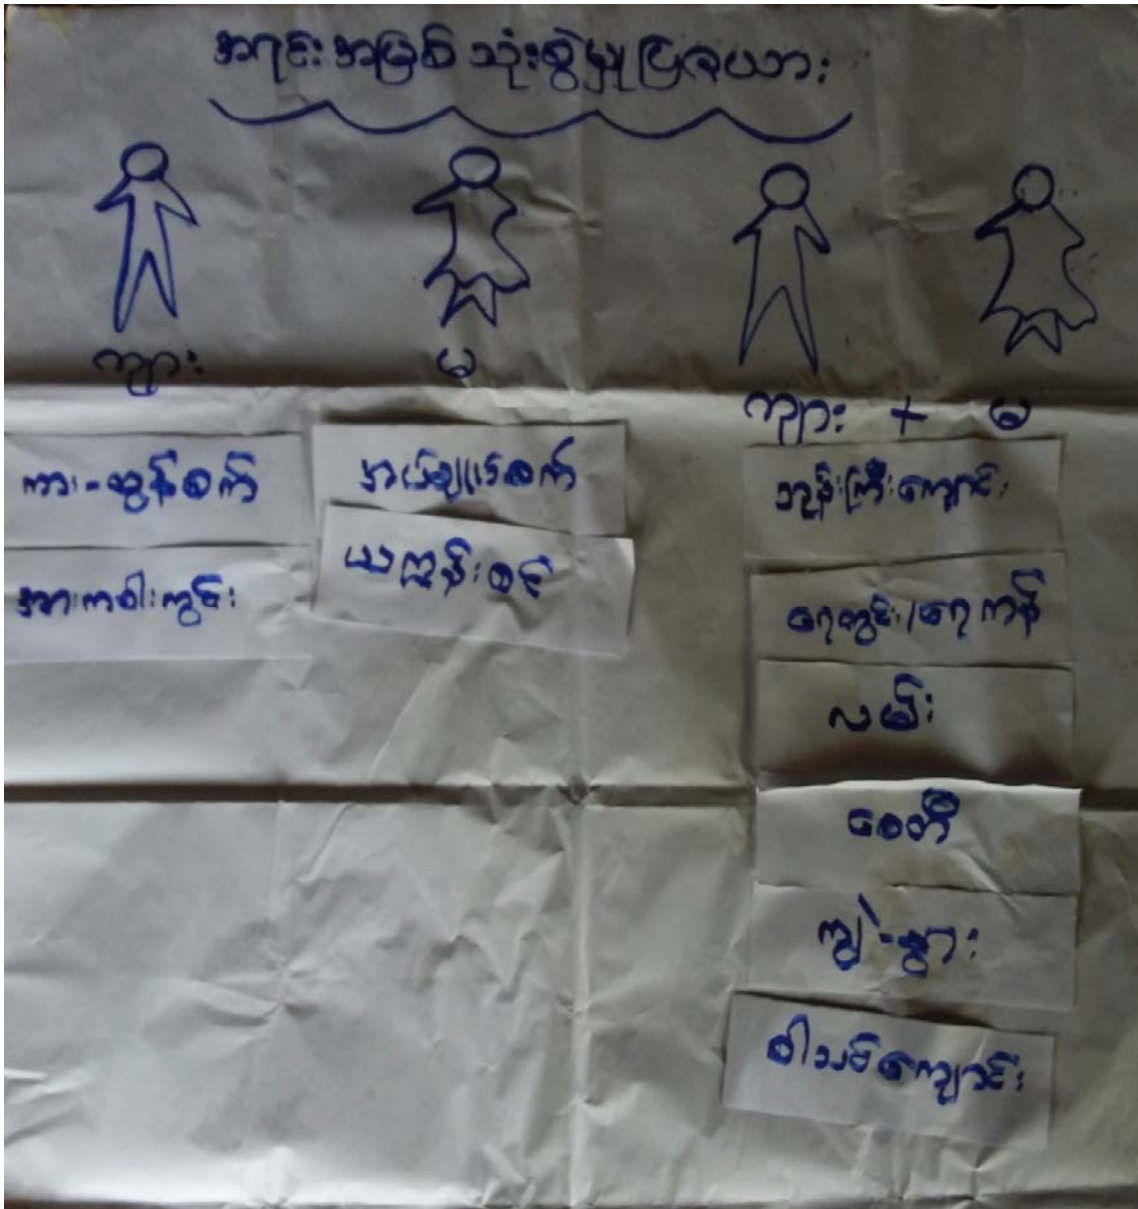 အရင်းအမြစ် သုံးစွဲမှုပြဇယား
ကျား
မ
ကျား + မ
ကား-ထွန်စက်
အားကစါးကွင်း
အပ်ချုပ်စက်
ယက္ကန်းစင်
ဘုန်းကြီးကျောင်း
ရေတွင်း/ရေကန်
လမ်း
စေတီ
ကျွဲ-နွား
စါသင်ကျောင်း